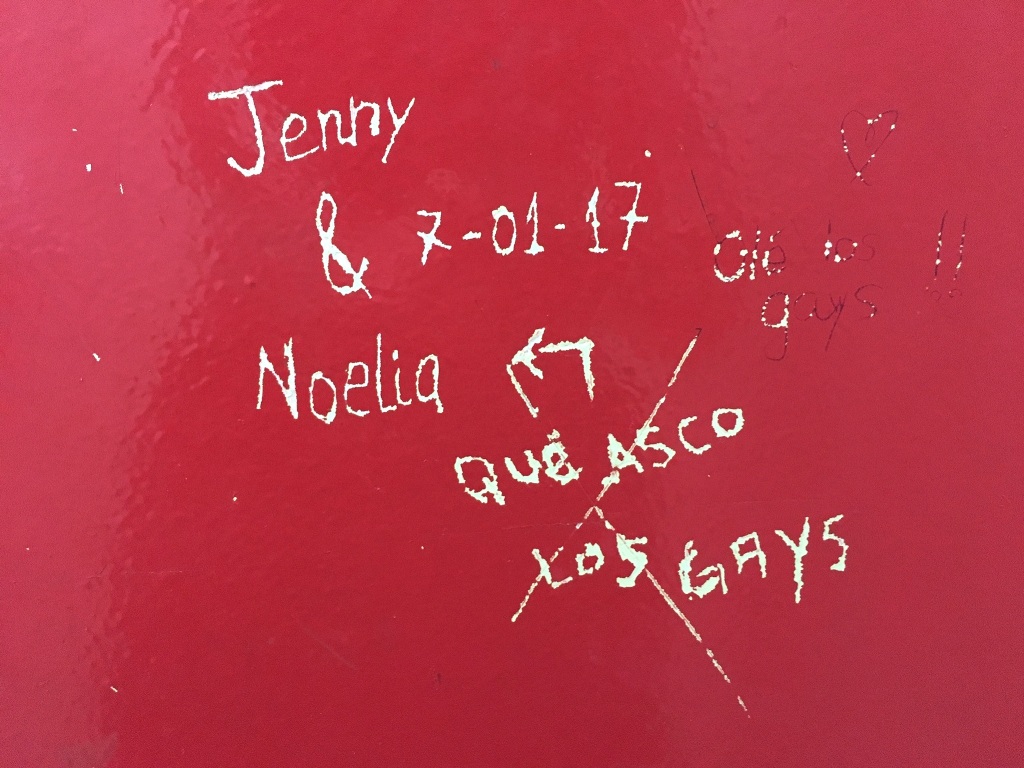 Jenny
& 7-01-17
Noelia
QUÉ ASCO
LOS GAYS
Olé los !!
gays